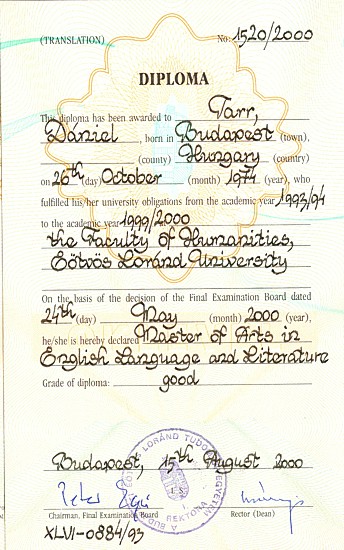 (TRANSLATION) No: 1520/2000
DIPLOMA
This diploma has been awarded to Tarr,
Dániel, born in Budapest (town),
(county) Hungary (country)
on 26th (day) October (month) 1974 (year), who
fulfilled his/her university obligations from the academic year 1993/94
to the academic year 1999/2000
the Faculty of Humanities,
Eötvös Loránd University
On the basis of the decision of the Final Examination Board dated
24th (day) May (month) 2000 (year),
he/she is hereby declared Master of Arts in
English Language and Literature
Grade of diploma: good
Budapest, 15th August 2000
LORÁND TUDOMÁNYEGYETEM
REKTORA
Chairman, Final Examination Board Rector (Dean)
XLVI-0884/93